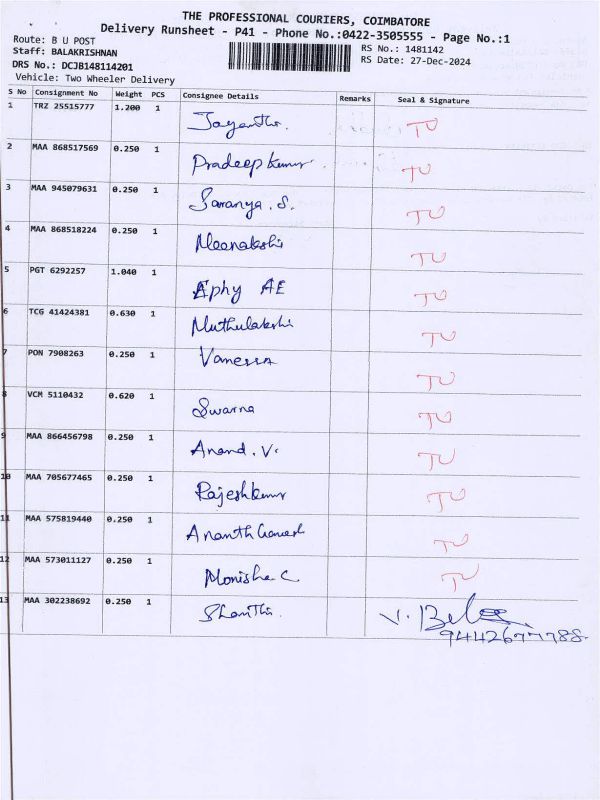 THE PROFESSIONAL COURIERS, COIMBATORE
Delivery Runsheet - P41 - Phone No.:0422-3505555 - Page No.:1
Route: B U POST
RS No.: 1481142
Staff: BALAKRISHNAN
RS Date: 27-Dec-2024
DRS No.: DCJB148114201
Vehicle: Two Wheeler Delivery
S No Consignment No Weight PCS Consignee Details Remarks Seal & Signature
1 TRZ 25515777 1.200 1 Jayanthi. TU
2 MAA 868517569 0.250 1 Pradeep kumar. TU
3 MAA 945079631 0.250 1 Saranya. S. TU
4 MAA 868518224 0.250 1 Meenakshi TU
5 PGT 6292257 1.040 1 Ephy AE TU
6 TCG 41424381 0.630 1 Muthulakshi TU
7 PON 7908263 0.250 1 Vanessa TU
8 VCM 5110432 0.620 1 Swarna TU
9 MAA 866456798 0.250 1 Anand. V. TU
10 MAA 705677465 0.250 1 Rajeshkumar TU
11 MAA 575819440 0.250 1 Ananth Ganesh TU
12 MAA 573011127 0.250 1 Monisha C TU
13 MAA 302238692 0.250 1 Shanthi. V. Bala
9442677788